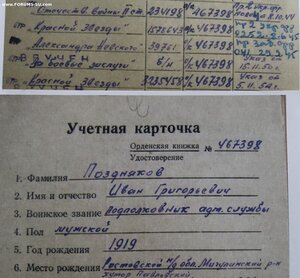 www.FORUMS-SU.com
Отечеств. войны I ст. 234198 о/к 467398
"Красной Звезды" 1578643 о/к 467398
Александра Невского 39761 о/к 467398
За боевые заслуги б/н о/к 467398 15.11.50 г.
"Красной Звезды" 3235458 о/к 467398 5.11.54 г.
Учетная карточка
Орденская книжка № 467398
Удостоверение
1. Фамилия Поздняков
2. Имя и отчество Иван Григорьевич
3. Воинское звание подполковник адм. службы
4. Пол мужской
5. Год рождения 1919
6. Место рождения Ростовской обл. Мигулинский р-н
хутор Павловский